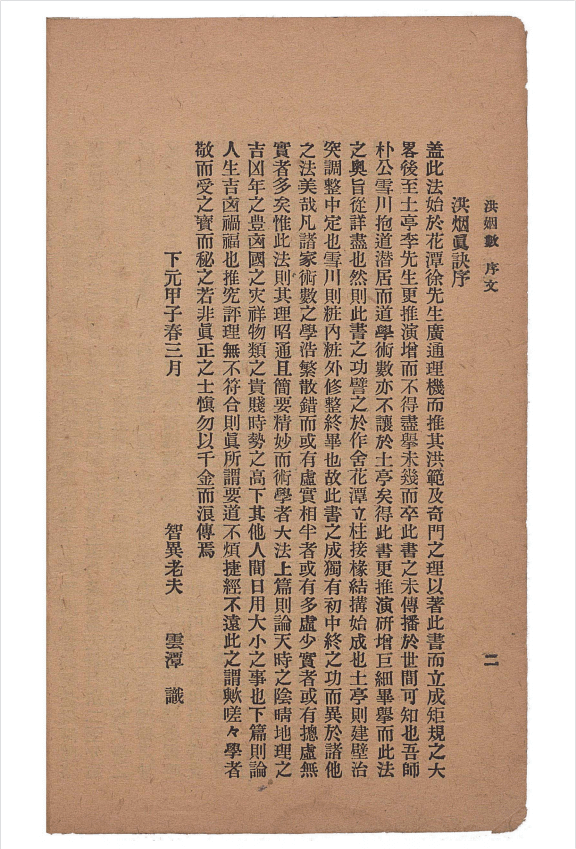 洪烟數 序文 二
洪烟眞訣序
盖此法始於花潭徐先生廣通理機而推其洪範及奇門之理以著此書而立成矩規之大
畧後至土亭李先生更推演增而不得盡擧未幾而卒此書之未傳播於世間可知也吾師
朴公雪川抱道潜居而道學術數亦不讓於土亭矣得此書更推演研增巨細畢擧而此法
之奧旨從詳盡也然則此書之功譬之於作舍花潭立柱接椽結搆始成也土亭則建壁治
突調整中定也雪川則粧內粧外修整終畢也故此書之成獨有初中終之功而異於諸他
之法美哉凡諸家術數之學浩繁散錯而或有虛實相半者或有多虛少實者或有摠虛無
實者多矣惟此法則其理昭通且簡要精妙而術學者大法上篇則論天時之陰晴地理之
吉凶年之豊凶國之灾祥物類之貴賤時勢之高下其他人間日用大小之事也下篇則論
人生吉凶禍福也推究評理無不符合則眞所謂要道不煩捷經不遠此之謂歟嗟々學者
敬而受之寶而秘之若非眞正之士愼勿以千金而浪傳焉
下元甲子春三月 智異老夫 雲潭 識